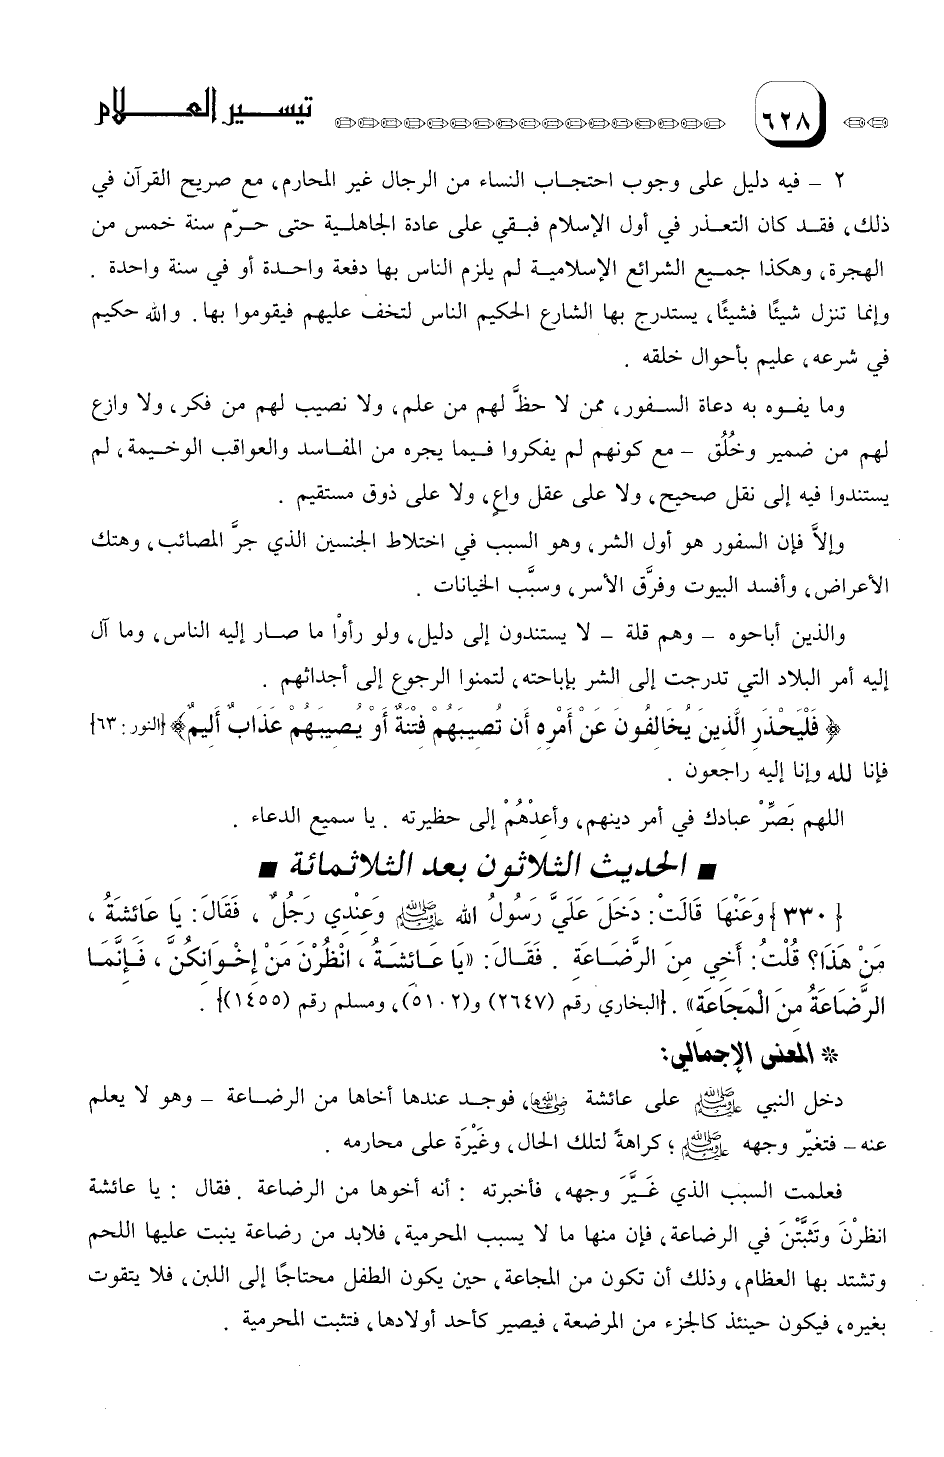 تيسير العلام ٦٢٨
٢ – فيه دليل على وجوب احتجاب النساء من الرجال غير المحارم، مع صريح القرآن في
ذلك، فقد كان التعذر في أول الإسلام فبقي على عادة الجاهلية حتى حرّم سنة خمس من
الهجرة، وهكذا جميع الشرائع الإسلامية لم يلزم الناس بها دفعة واحدة أو في سنة واحدة .
وإنما تنزل شيئًا فشيئًا، يستدرج بها الشارع الحكيم الناس لتخف عليهم فيقوموا بها. والله حكيم
في شرعه، عليم بأحوال خلقه .
وما يفوه به دعاة السفور، ممن لا حظَّ لهم من علم، ولا نصيب لهم من فكر، ولا وازع
لهم من ضمير وخُلُق – مع كونهم لم يفكروا فيما يجره من المفاسد والعواقب الوخيمة، لم
يستندوا فيه إلى نقل صحيح، ولا على عقل واعٍ، ولا على ذوق مستقيم .
وإلاَّ فإن السفور هو أول الشر، وهو السبب في اختلاط الجنسين الذي جرَّ المصائب، وهتك
الأعراض، وأفسد البيوت وفرَّق الأسر، وسبَّب الخيانات .
والذين أباحوه – وهم قلة – لا يستندون إلى دليل، ولو رأوْا ما صار إليه الناس، وما آل
إليه أمر البلاد التي تدرجت إلى الشر بإباحته، لتمنوا الرجوع إلى أجداثهم .
﴿ فَلْيَحْذَرِ الَّذِينَ يُخَالِفُونَ عَنْ أَمْرِهِ أَن تُصِيبَهُمْ فِتْنَةٌ أَوْ يُصِيبَهُمْ عَذَابٌ أَلِيمٌ ﴾ {النور: ٦٣}
فإنا لله وإنا إليه راجعون .
اللهم بَصِّرْ عبادك في أمر دينهم، وأَعِدْهُمْ إلى حظيرته . يا سميع الدعاء .
■ الحديث الثلاثون بعد الثلاثمائة ■
{٣٣٠} وَعَنْهَا قَالَتْ: دَخَلَ عَلَيَّ رَسُولُ الله ﷺ وَعِنْدِي رَجُلٌ ، فَقَالَ: يَا عَائِشَةُ ،
مَنْ هَذَا؟ قُلْتُ: أَخِي مِنَ الرَّضَاعَةِ . فَقَالَ: «يَا عَائِشَةُ ، انْظُرْنَ مَنْ إِخْوَانُكُنَّ ، فَإِنَّمَا
الرَّضَاعَةُ مِنَ الْمَجَاعَةِ» . {البخاري رقم (٢٦٤٧) و(٥١٠٢)، ومسلم رقم (١٤٥٥)} .
* المعنى الإجمالي:
دخل النبي ﷺ على عائشة رضي الله عنها، فوجد عندها أخاها من الرضاعة – وهو لا يعلم
عنه– فتغيّر وجهه ﷺ؛ كراهةً لتلك الحال، وغَيْرَة على محارمه .
فعلمت السبب الذي غَيَّرَ وجهه، فأخبرته : أنه أخوها من الرضاعة . فقال : يا عائشة
انظرْنَ وتَثَبَّتْنَ في الرضاعة، فإن منها ما لا يسبب المحرمية، فلابد من رضاعة ينبت عليها اللحم
وتشتد بها العظام، وذلك أن تكون من المجاعة، حين يكون الطفل محتاجًا إلى اللبن، فلا يتقوت
بغيره، فيكون حينئذ كالجزء من المرضعة، فيصير كأحد أولادها، فتثبت المحرمية .